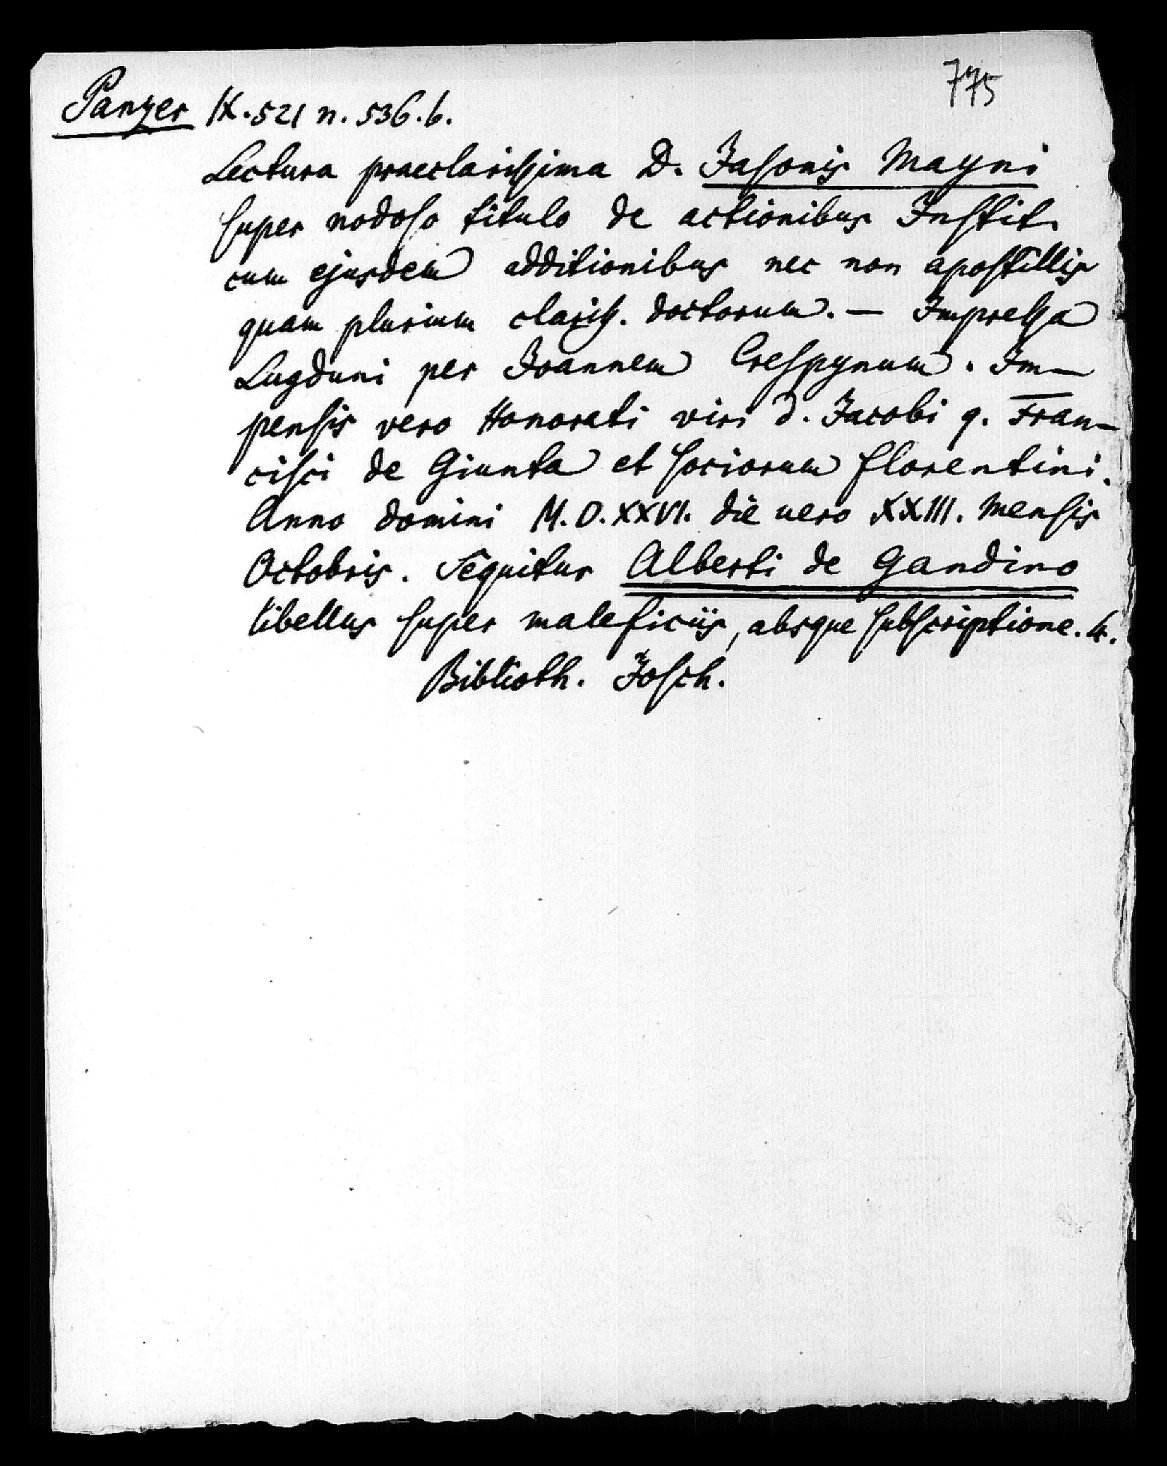 775
Panzer IX. 521 n. 536. b.
Lectura praeclarissima D. Jasonis Mayni
super nodoso titulo de actionibus Instit.
cum ejusdem additionibus nec non apostillis
quam plurium clariss. doctorum. — Impressa
Lugduni per Joannem Crespynum. Im-
pensis vero Honorati viri d. Jacobi q. Fran-
cisci de Giunta et sociorum florentini.
Anno domini M.D.XXVI. die uero XXIII. mensis
Octobris. Sequitur Alberti de Gandino
libellus super maleficiis, absque subscriptione. 4.
Biblioth. Josch.